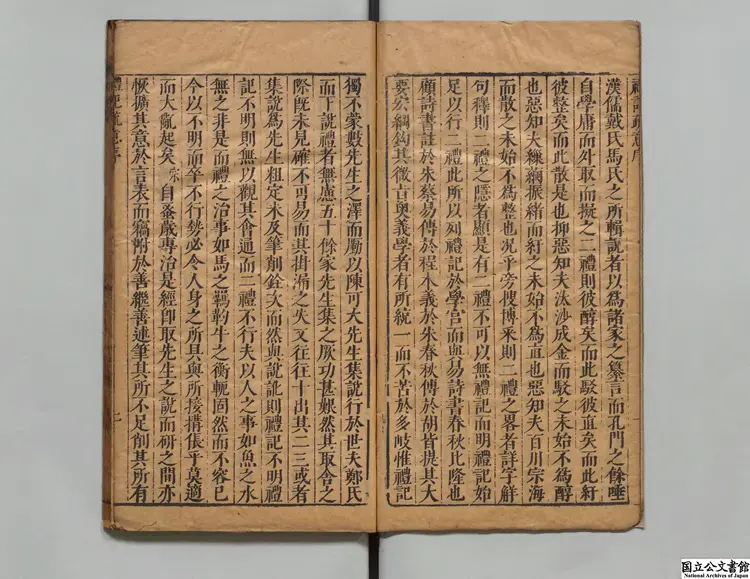 漢儒戴氏馬氏之所輯說者以為諸家之纂言而孔門之餘唾
自學庸而外取而擬之二禮則彼醇矣而此駁彼直矣而此紆
彼整矣而此散是也抑惡知夫汰沙成金而駁之未始不為醇
也惡知大綱振緒而紆之未始不為直也惡知夫百川宗海
而散之未始不為整也况乎旁搜博采則二禮之畧者詳字觧
句釋則二禮之隱者顯是有二禮不可以無禮記而明禮記始
足以行二禮此所以列禮記於學官而與易詩書春秋比隆也
顧詩書註於朱蔡易傳於程本義於朱春秋傳於胡皆提其大
要宏綱鈎其微言奥義學者有所統一而不苦於多岐惟禮記
獨不蒙數先生之澤而勵以陳可大先生集說行於世夫鄭氏
而下說禮者無慮五十餘家先生集之厥功甚娰然其取舍之
際既未見確不可易而其掛漏之失又往往十出其二三或者
集說為先生粗定未及筆削餘次而然與說訛則禮記不明禮
記不明則無以觀其會通而二禮不行夫以人之事如魚之水
無之非是而禮之治事如馬之羈靮牛之衡軛固然而不容已
今以不明而卒不行勢必令人身之所具與所接搆倀乎莫適
而大亂起矣宗自蚤歲專治是經即取先生之說而研之間亦
恢擴其意於言表而竊附於善繼善述筆其所不足削其所有
禮記疏意序
二
国立公文書館
National Archives of Japan